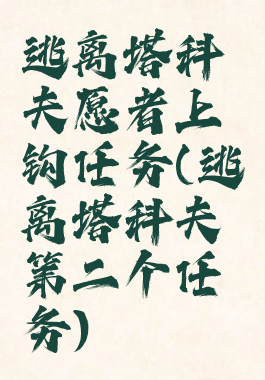 逃离塔科
夫愿者上
钩任务(逃
离塔科夫
第二个任
务)